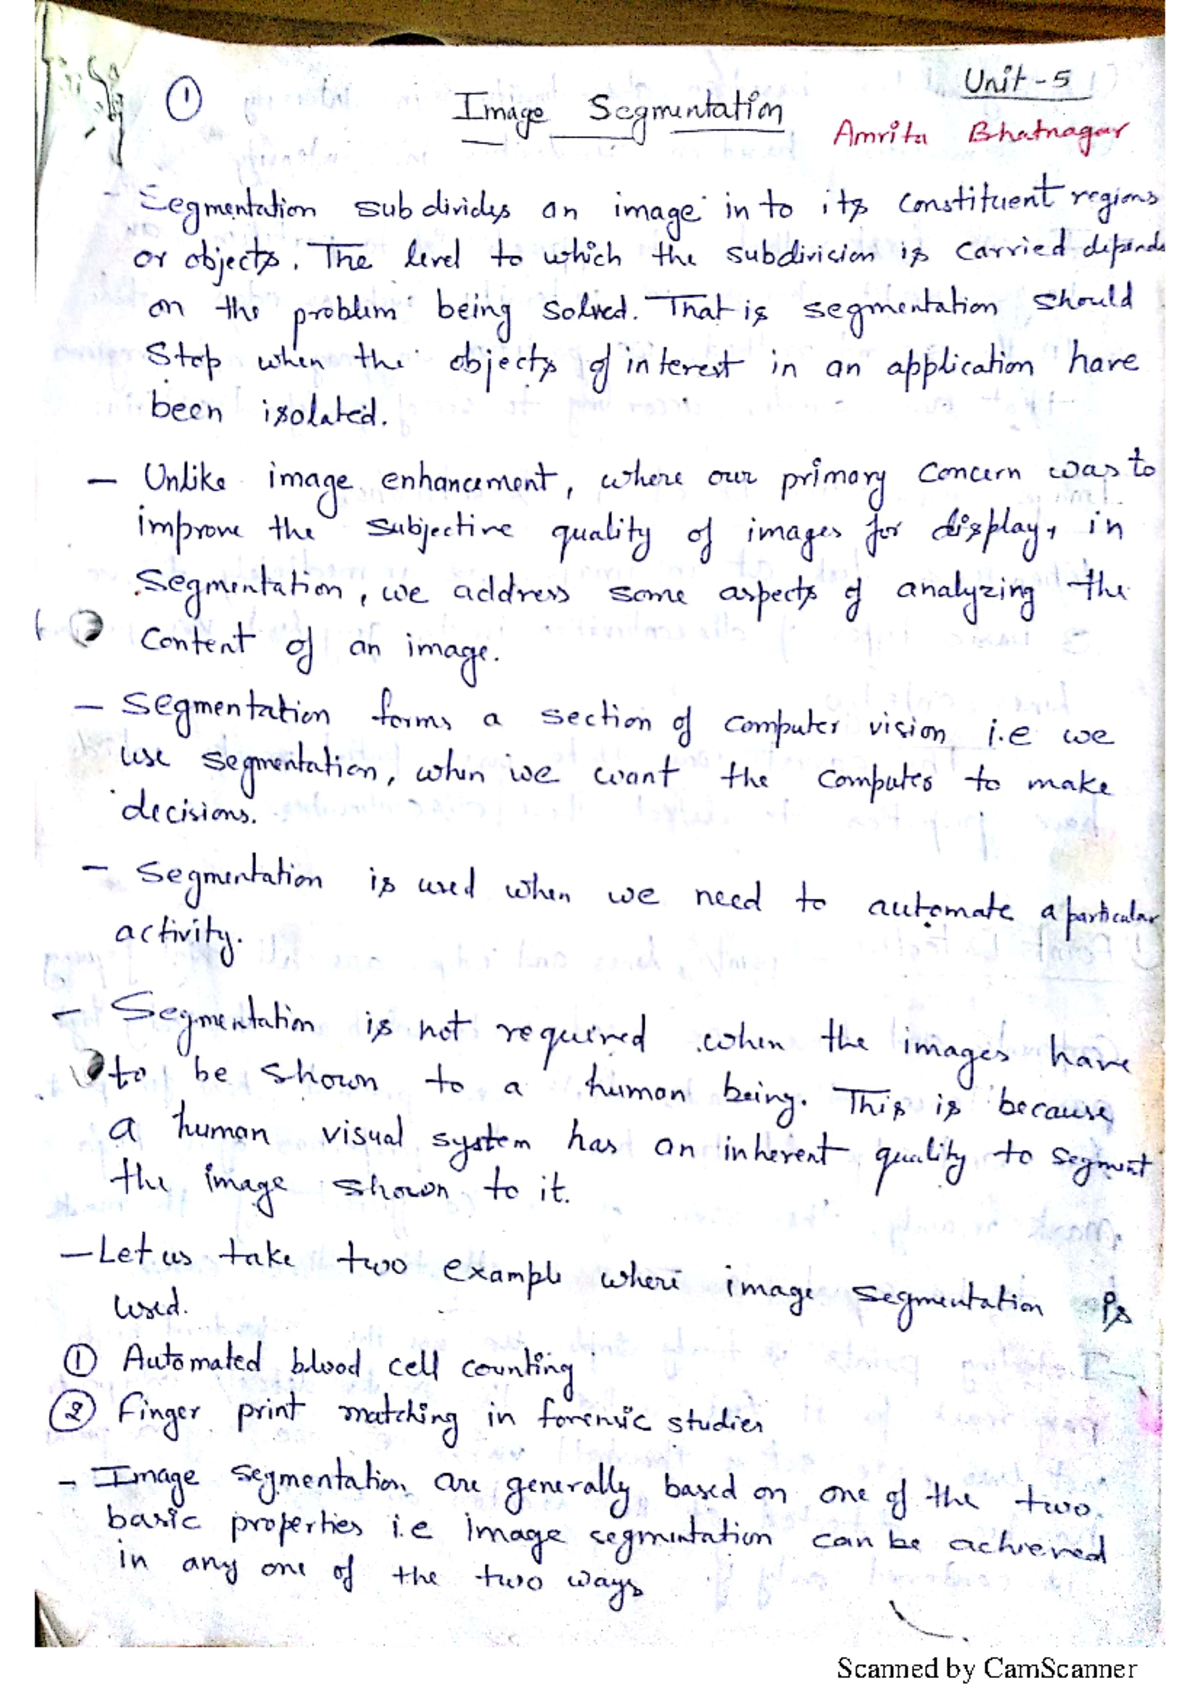 Unit-5
① Image Segmentation
Amrita Bhatnagar
- Segmentation subdivides an image in to its constituent regions
or objects. The level to which the subdivision is carried depends
on the problem being solved. That is segmentation should
Stop when the objects of interest in an application have
been isolated.
- Unlike image enhancement, where our primary concern was to
improve the subjective quality of images for display, in
segmentation, we address some aspects of analyzing the
content of an image.
- Segmentation forms a section of computer vision i.e we
use segmentation, when we want the computer to make
decisions.
- Segmentation is used when we need to automate a particular
activity.
- Segmentation is not required when the images have
to be shown to a human being. This is because
a human visual system has an inherent quality to segment
the image shown to it.
- Let us take two example where image segmentation is
used.
① Automated blood cell counting
② Finger print matching in forensic studies
- Image segmentation are generally based on one of the two
basic properties i.e image segmentation can be achieved
in any one of the two ways
Scanned by CamScanner